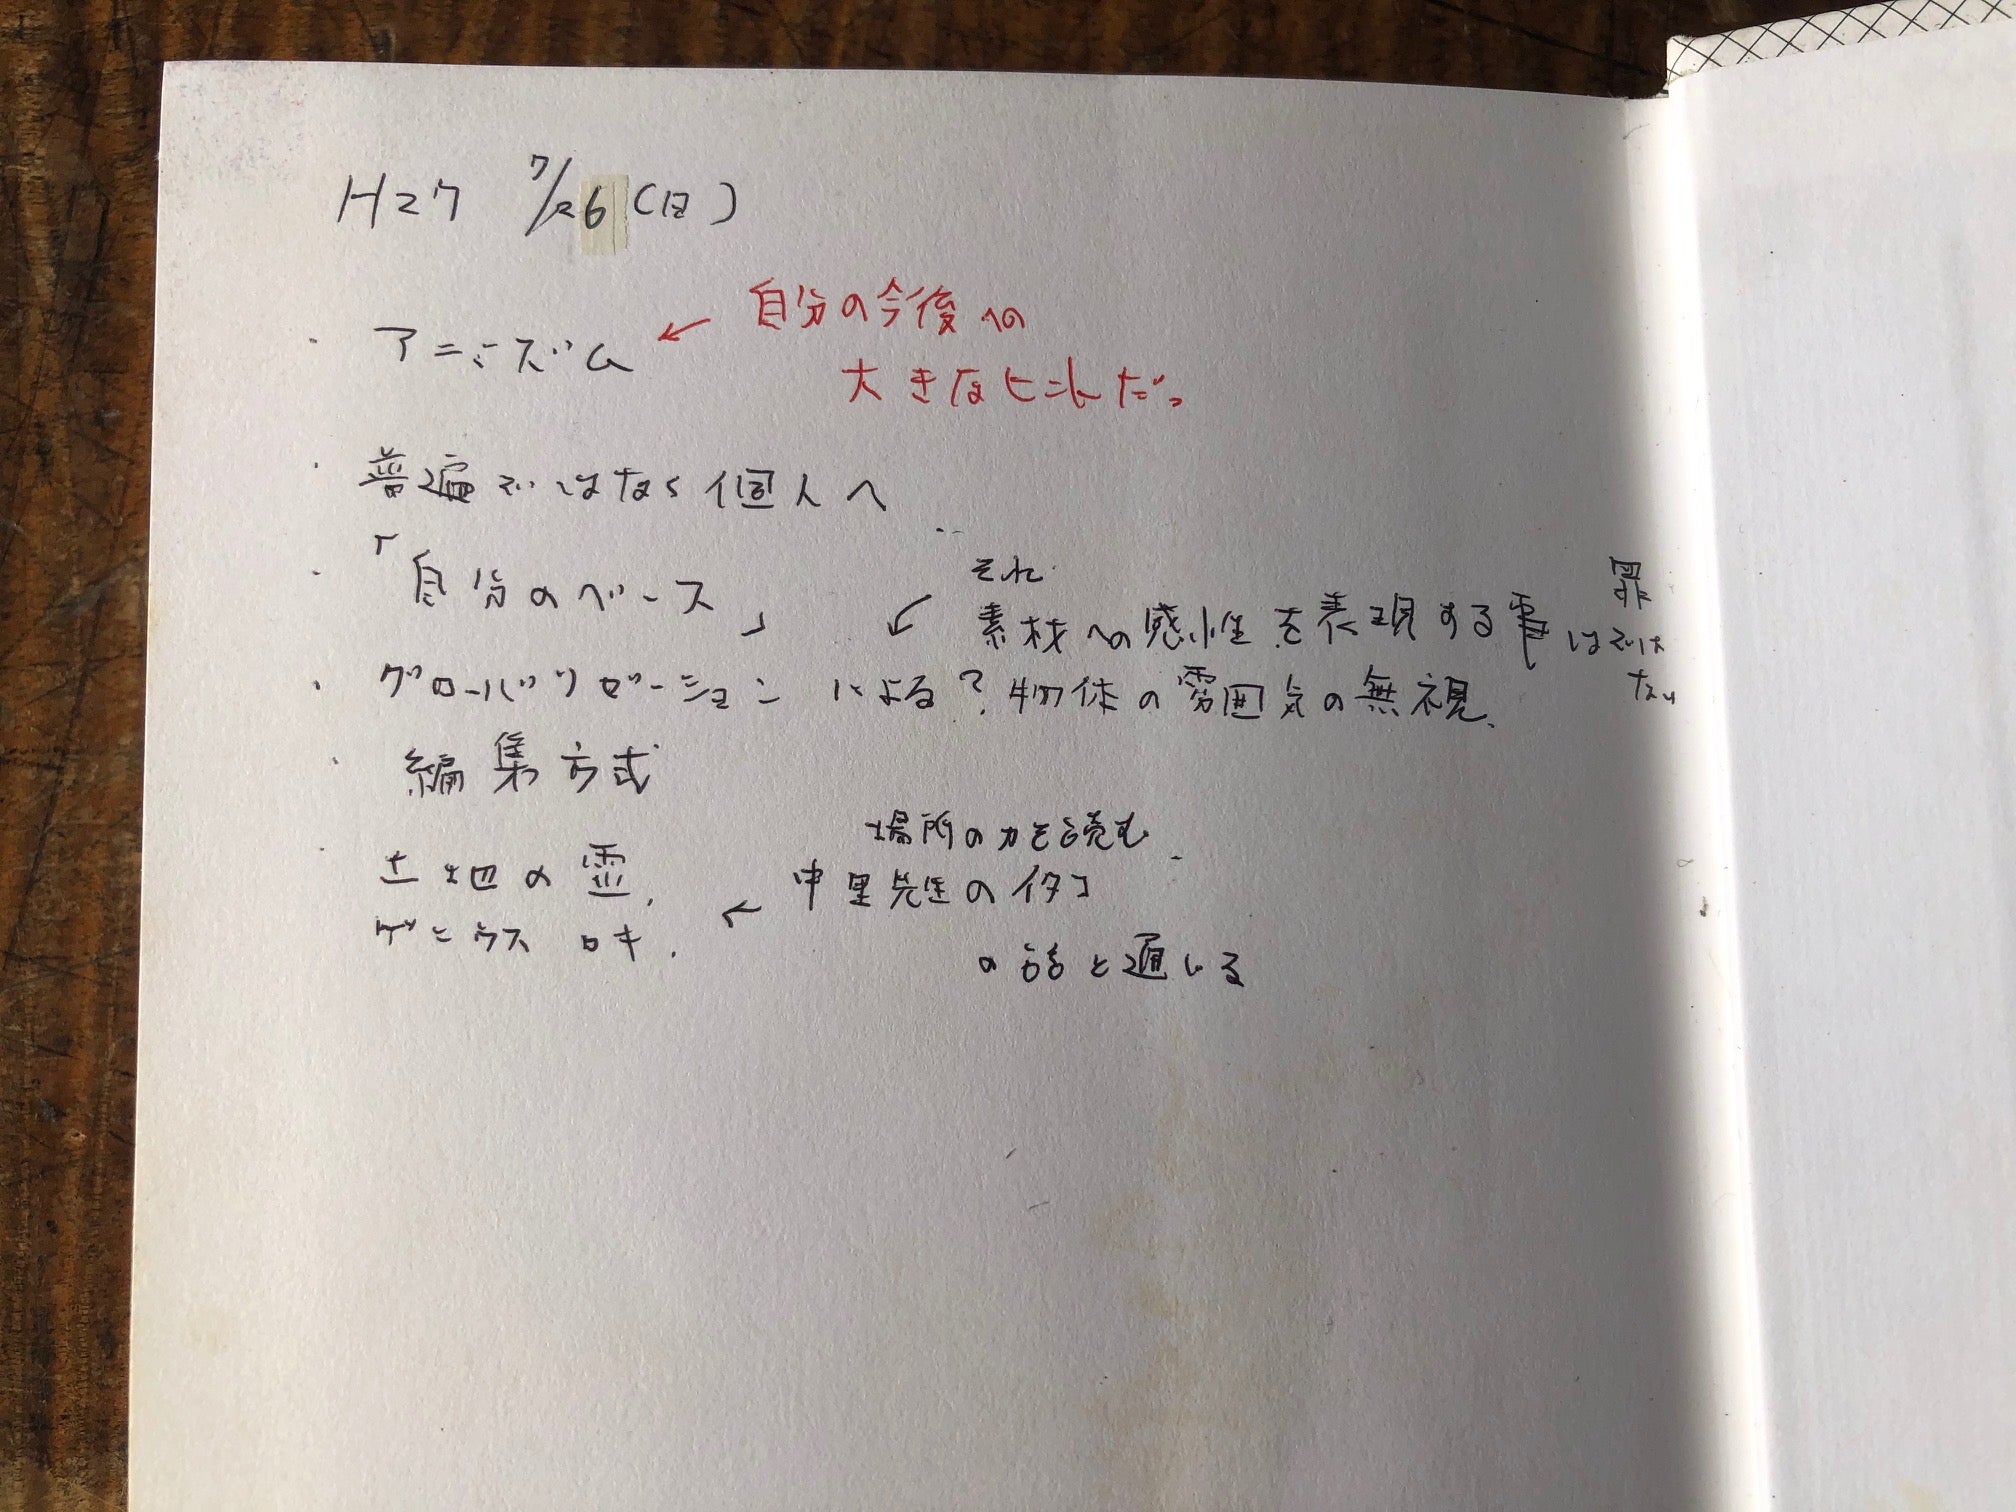 H27 7/26(日)
・アニミズム ← 自分の今後への
大きなヒントだ。
・普遍ではなく個人へ
・「自分のベース」
それ
← 素材への感性を表現する事は罪ではない
・グローバリゼーションによる?物体の雰囲気の無視.
・編集方式
場所の力を読む
・土地の霊. ← 中里先生のイタコ
ゲニウス ロキ.
の話と通じる